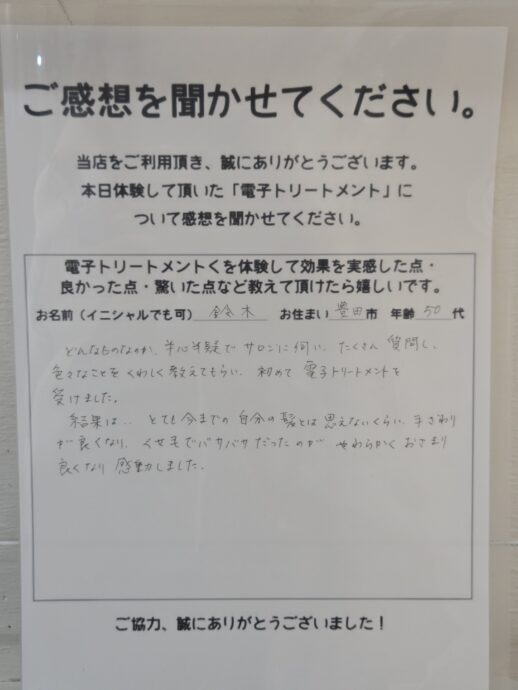 ご感想を聞かせてください。
当店をご利用頂き、誠にありがとうございます。
本日体験して頂いた「電子トリートメント」に
ついて感想を聞かせてください。
電子トリートメントくを体験して効果を実感した点・
良かった点・驚いた点など教えて頂けたら嬉しいです。
お名前（イニシャルでも可） 鈴木 お住まい 豊田市 年齢 50 代
どんなものなのか、半心半疑で サロンに伺い、たくさん 質問し、
色々なことを くわしく 教えてもらい、初めて 電子トリートメントを
受けました。
結果は‥ とても今までの 自分の 髪とは 思えないくらい 手ざわり
が良くなり、くせ毛でパサパサだったのが やわらかく おさまり
良くなり 感動しました。
ご協力、誠にありがとうございました！